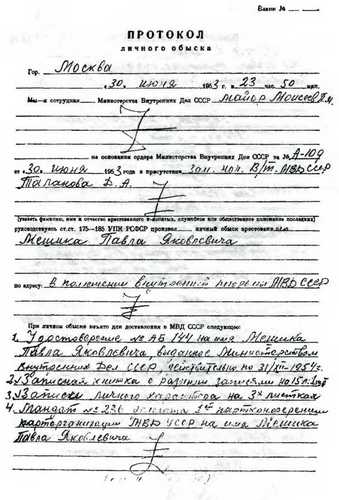 Бланк № 
ПРОТОКОЛ
личного обыска
Гор. Москва
30 июня 1953 г. в 23 час. 50 мин.
Мы—я сотрудник Министерства Внутренних Дел СССР майор Моисеев
на основании ордера Министерства Внутренних Дел СССР за № А-109
от «30» июня 1953 года в присутствии Зам. нач. В/т. МВД СССР
Таланова Д. А.
руководствуясь ст.ст. 175—185 УПК РСФСР произвел личный обыск арестованного
Мешика Павла Яковлевича
по адресу: В помещении внутренней тюрьмы МВД СССР
При личном обыске взято для доставления в МВД СССР следующее:
1. Удостоверение № АБ 144 на имя Мешика
Павла Яковлевича, выданное Министерством
Внутренних Дел СССР, действительно по 31/XII-1954 г.
2. Записная книжка с разными записями на 15
3. Записки личного характера на 3х листках
4. Мандат № 236 делегата партконференции
парторганизации МВД УССР на имя Мешика
Павла Яковлевича